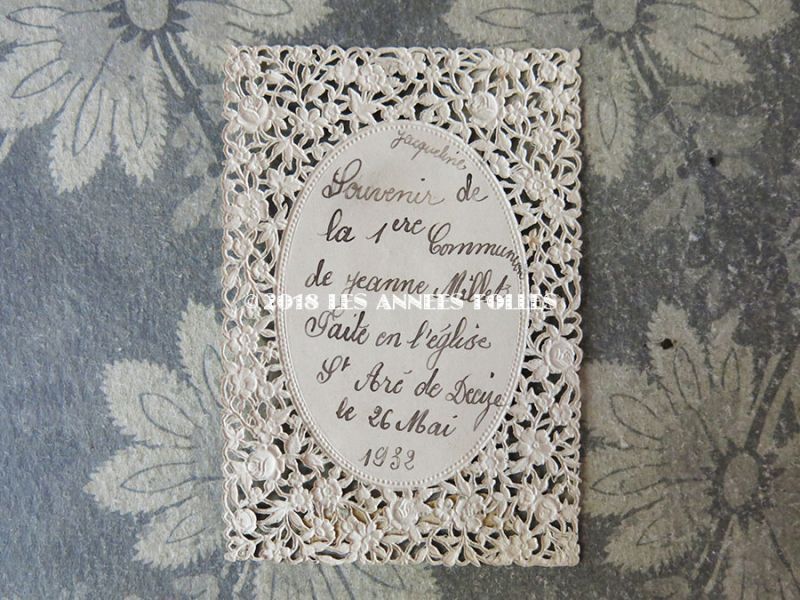 Jacqueline
Souvenir de
la 1ère Communion
de Jeanne Millet
©2018 LES ANNEES FOLLES
Faite en l'église
St Aré de Decize
le 26 Mai
1932